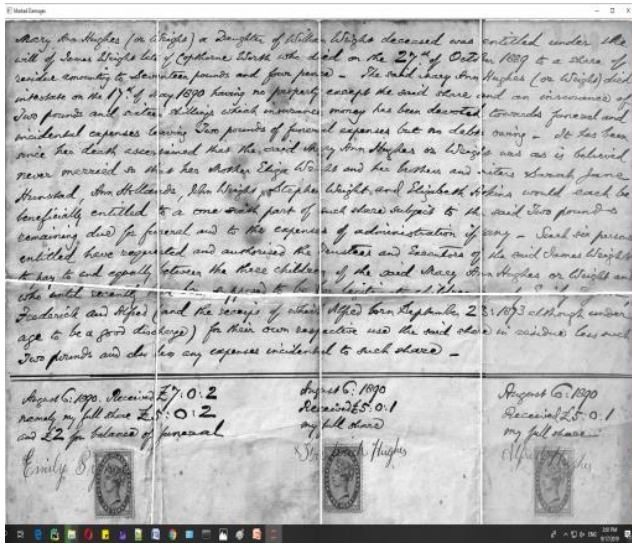 Marked Damages
Mary Ann Hughes (or Wright) a Daughter of William Wright deceased was entitled under the
will of James Wright late of Copthorne Worth who died on the 27th of October 1889 to a share of
residue amounting to Seventeen pounds and four pence - The said Mary Ann Hughes (or Wright) died
intestate on the 17th of May 1890 having no property except the said share and an insurance of
Two pounds and sixteen shillings which insurance money has been devoted towards funeral and
incidental expenses leaving Two pounds of funeral expenses but no debts owing - It has been
since her death ascertained that the said Mary Ann Hughes or Wright was as is believed
never married so that her Mother Eliza Wright and her brothers and sisters Sarah Jane
Ann John Wright, Stephen Wright and Elizabeth would each be
beneficially entitled to a one sixth part of such share subject to the said Two pounds
remaining due for funeral and to the expenses of administration if any - Such six persons
entitled have requested and authorised the Trustees and Executors of the said James Wright
to pay to and equally between the three children of the said Mary Ann Hughes or Wright
who until recently supposed to be
Frederick and Alfred (and the receipt of which Alfred born September 23: 1873 although under
age to be a good discharge) for their own respective use the said share in residue less such
Two pounds and also less any expenses incidental to such share -
August 6: 1890. Received £7:0:2
namely my full share £5:0:2
and £2 for balance of funeral
Emily
August 6: 1890
Received £5:0:1
my full share
X Hughes
August 6: 1890
Received £5:0:1
my full share
Alfred Hughes
3:01 PM
9/17/2019